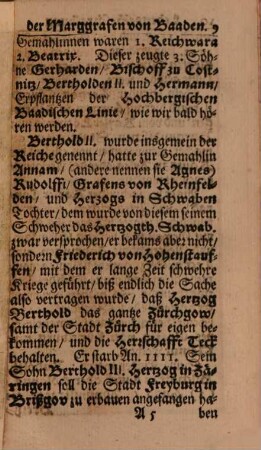 der Marggrafen von Baaden. 9
Gemahlinnen waren 1. Reichwara
2. Beatrix. Dieser zeugte 3. Söh-
ne Gerharden/ Bischoff zu Cost-
nitz/ Bertholden II. und Hermann/
Erpflantzen der Hochbergischen
Baadischen Linie/ wie wir bald hö-
ren werden.
Berthold II. wurde insgemein der
Reiche genennt/ hatte zur Gemahlin
Annam/ (andere nennen sie Agnes)
Rudolffi/ Grafens von Rheinfel-
den/ und Herzogs in Schwaben
Tochter/ dem wurde von diesem seinem
Schweher das Hertzogth. Schwab.
zwar versprochen/ er bekams aber nicht/
sondern Friederich von Hohenstauf-
fen/ mit dem er lange Zeit schwehre
Kriege geführt/ biß endlich die Sache
also vertragen wurde/ daß Hertzog
Berthold das gantze Zürchgow/
samt der Stadt Zürch für eigen be-
kommen/ und die Herrschafft Teck
behalten. Er starb An. 1111. Sein
Sohn Berthold III. Hertzog in Zä-
ringen soll die Stadt Freyburg in
Brißgov zu erbauen angefangen ha-
A 5 ben